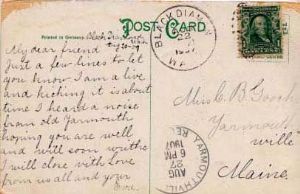 Printed in Germany.
POST CARD
Black Diamond
Aug 20-07
My dear friend
Just a few lines to let
you know I am a live
and kicking it is about
time I heard a noise
from old Yarmouth
hoping you are well
and will soon write
I will close with love
from us all and your
BLACK DIAMOND
22
WA
Miss C B Gooch
Yarmouth
ville
Maine.
YARMOUTHVILLE
AUG
6 PM
1907
REC